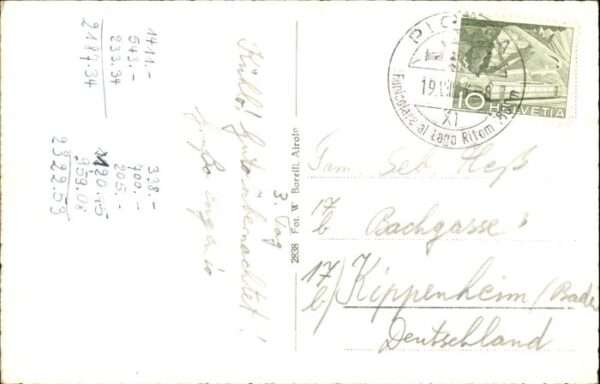 1411.-
543.-
233.34
2187.34
338.-
700.-
205.-
120.45
959.08
2322.53
Kühle! Gut übernachtet!
3. Tag
2838 Fot. W. Borelli, Airolo
PIOTTA
19.VIII.
XI
Funicolare al Lago Ritom
10 HELVETIA
Fam. Seb. Heß
17
b Bachgasse
17
b/ Kippenheim/Baden
Deutschland